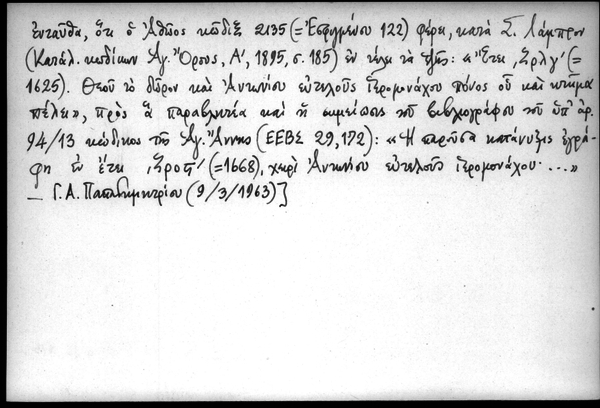 ἐνταῦθα, ὅτι ὁ Ἀθῷος κῶδιξ 2135 (= Ἐσφιγμένου 122) φέρει, κατὰ Σ. Λάμπρον
(Κατάλ. κωδίκων Ἁγ. Ὄρους, Α', 1895, σ. 185) ἐν τέλει τὰ ἑξῆς: «Ἔτει ͵ζρλγ' (=
1625). Θεοῦ τὸ δῶρον καὶ Ἀντωνίου εὐτελοῦς ἱερομονάχου πόνος οὗ καὶ κτῆμα
πέλει», πρὸς ἃ παραβλητέα καὶ ἡ σημείωσις τοῦ βιβλιογράφου τοῦ ὑπ' ἀρ.
94/13 κώδικος τῆς Ἁγ. Ἄννης (ΕΕΒΣ 29, 172): «Ἡ παροῦσα κατάνυξις ἐγρά-
φη ἐν ἔτει ͵ζροϛ' (= 1668), χειρὶ Ἀντωνίου εὐτελοῦς ἱερομονάχου ...»
— Γ. Α. Παπαδημητρίου (9/3/1963)]